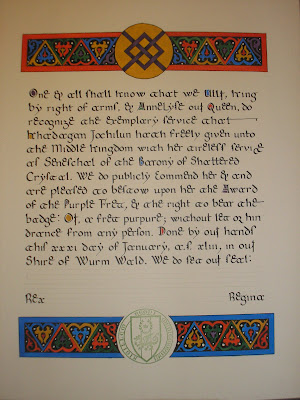 One & all shall know that we Ullr, king
by right of arms, & Annelyse our Queen, do
recognize the exemplary service that
Khadagan Jochilun hath freely given unto
the Middle Kingdom with her tireless service
as Seneschal of the Barony of Shattered
Crystal. We do publicly commend her & and
are pleased to bestow upon her the Award
of the Purple Fret, & the right to bear the
badge: Of, a fret purpure; without let or hin
drance from any person. Done by our hands
this xxxi day of January, a.s. xliii, in our
Shire of Wurm Wald. We do set our seal:
Rex Regina